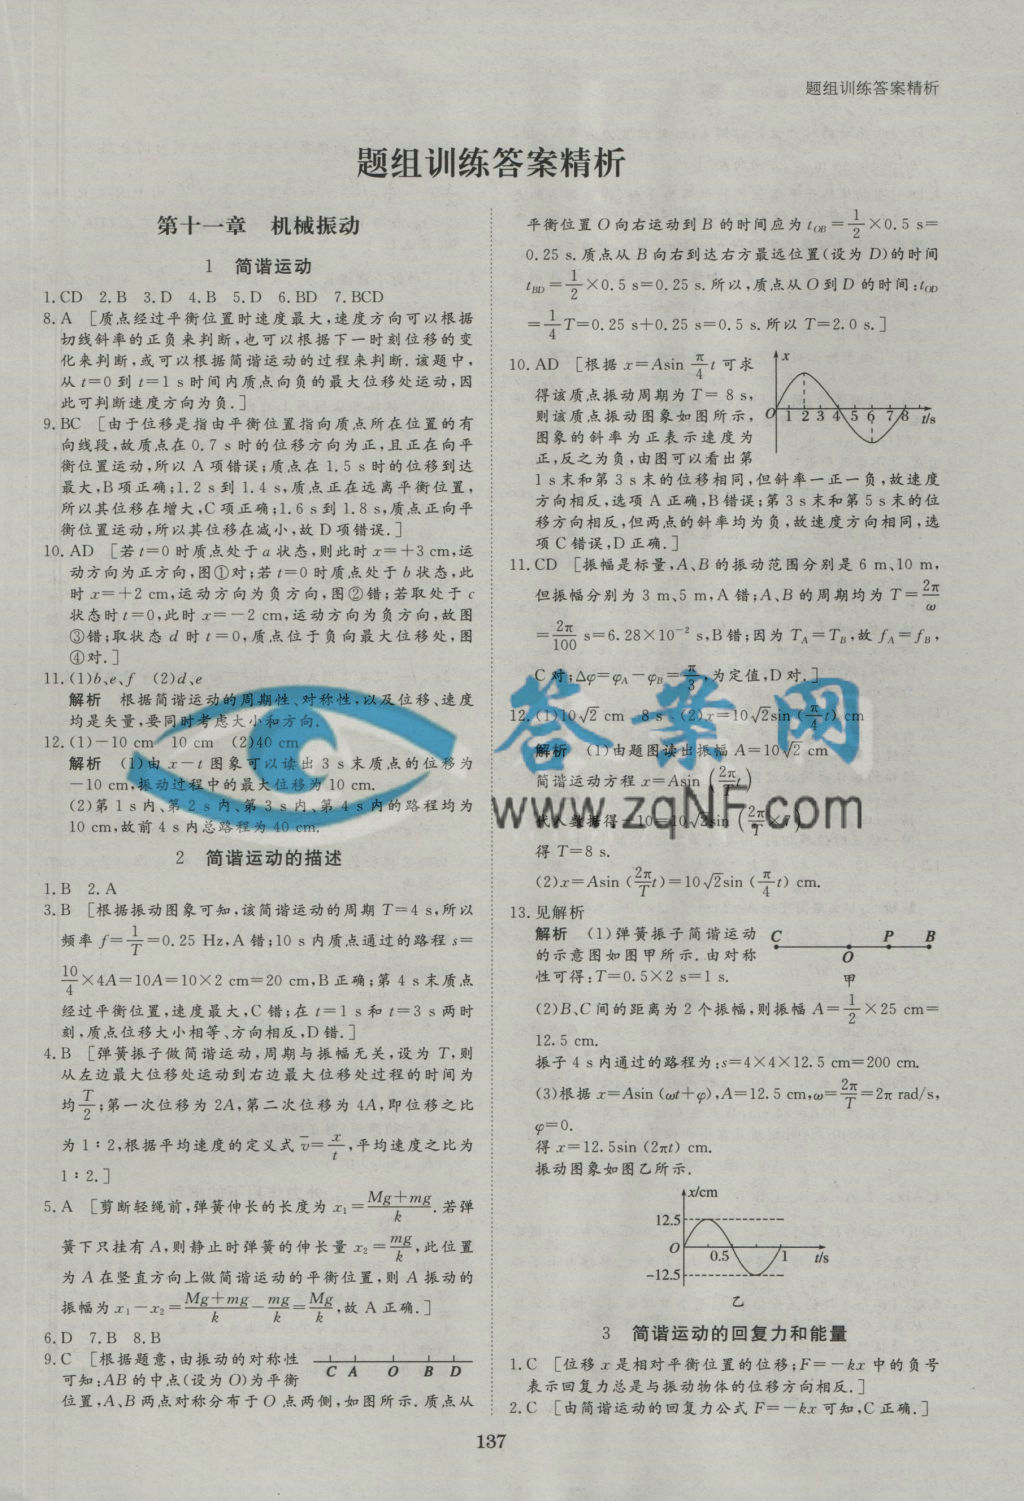 题组训练答案精析
题组训练答案精析
第十一章 机械振动
1 简谐运动
1.CD 2.B 3.D 4.B 5.D 6.BD 7.BCD
8.A [质点经过平衡位置时速度最大,速度方向可以根据
切线斜率的正负来判断,也可以根据下一时刻位移的变
化来判断,或可以根据简谐运动的过程来判断.该题中,
从 t=0 到 t=1 s 时间内质点向负的最大位移处运动,因
此可判断速度方向为负.]
9.BC [由于位移是指由平衡位置指向质点所在位置的有
向线段,故质点在 0.7 s 时的位移方向为正,且正在向平
衡位置运动,所以 A 项错误;质点在 1.5 s 时的位移到达
最大,B 项正确;1.2 s 到 1.4 s,质点正在远离平衡位置,
所以其位移在增大,C 项正确;1.6 s 到 1.8 s,质点正向平
衡位置运动,所以其位移在减小,故 D 项错误.]
10.AD [若 t=0 时质点处于 a 状态,则此时 x=+3 cm,运
动方向为正方向,图①对;若 t=0 时质点处于 b 状态,此
时 x=+2 cm,运动方向为负方向,图②错;若取处于 c
状态时 t=0,此时 x=-2 cm,运动方向为负方向,故图
③错;取状态 d 时 t=0,质点位于负向最大位移处,图
④对.]
11.(1)b、e、f (2)d、e
解析 根据简谐运动的周期性、对称性,以及位移、速度
均是矢量,要同时考虑大小和方向.
12.(1)-10 cm 10 cm (2)40 cm
解析 (1)由 x-t 图象可以读出 3 s 末质点的位移为
-10 cm,振动过程中的最大位移为 10 cm.
(2)第 1 s 内、第 2 s 内、第 3 s 内、第 4 s 内的路程均为
10 cm,故前 4 s 内总路程为 40 cm.
2 简谐运动的描述
1.B 2.A
3.B [根据振动图象可知,该简谐运动的周期 T=4 s,所以
频率 f=1/T=0.25 Hz,A 错;10 s 内质点通过的路程 s=
10/4×4A=10A=10×2 cm=20 cm,B 正确;第 4 s 末质点
经过平衡位置,速度最大,C 错;在 t=1 s 和 t=3 s 两时
刻,质点位移大小相等、方向相反,D 错.]
4.B [弹簧振子做简谐运动,周期与振幅无关,设为 T,则
从左边最大位移处运动到右边最大位移处过程的时间为
均 T/2;第一次位移为 2A,第二次位移为 4A,即位移之比
为 1∶2,根据平均速度的定义式 v̄=x/t,平均速度之比为
1∶2.]
5.A [剪断轻绳前,弹簧伸长的长度为 x₁=(Mg+mg)/k.若弹
簧下只挂有 A,则静止时弹簧的伸长量 x₂=mg/k,此位置
为 A 在竖直方向上做简谐运动的平衡位置,则 A 振动的
振幅为 x₁-x₂=(Mg+mg)/k-mg/k=Mg/k,故 A 正确.]
6.D 7.B 8.B
9.C [根据题意,由振动的对称性
可知:AB 的中点(设为 O)为平衡
C A O B D
位置,A、B 两点对称分布于 O 点两侧,如图所示.质点从
平衡位置 O 向右运动到 B 的时间应为 t_OB=1/2×0.5 s=
0.25 s.质点从 B 向右到达右方最远位置(设为 D)的时间
t_BD=1/2×0.5 s=0.25 s.所以,质点从 O 到 D 的时间:t_OD
=1/4T=0.25 s+0.25 s=0.5 s.所以 T=2.0 s.]
10.AD [根据 x=Asin π/4 t 可求
得该质点振动周期为 T= 8 s,
则该质点振动图象如图所示,
图象的斜率为正表示速度为
正,反之为负,由图可以看出第
x
O 1 2 3 4 5 6 7 8 t/s
1 s 末和第 3 s 末的位移相同,但斜率一正一负,故速度
方向相反,选项 A 正确,B 错误;第 3 s 末和第 5 s 末的位
移方向相反,但两点的斜率均为负,故速度方向相同,选
项 C 错误,D 正确.]
11.CD [振幅是标量,A、B 的振动范围分别是 6 m、10 m,
但振幅分别为 3 m、5 m,A 错;A、B 的周期均为 T=2π/ω
=2π/100 s=6.28×10⁻² s,B 错;因为 T_A=T_B,故 f_A=f_B,
C 对;Δφ=φ_A-φ_B=π/3,为定值,D 对.]
12.(1)10√2 cm 8 s (2)x=10√2sin(π/4 t) cm
解析 (1)由题图读出振幅 A=10√2 cm
简谐运动方程 x=Asin(2π/T t)
代入数据得-10=10√2sin(2π/T×7)
得 T=8 s.
(2)x=Asin(2π/T t)=10√2sin(π/4 t) cm.
13.见解析
解析 (1)弹簧振子简谐运动
的示意图如图甲所示.由对称
性可得:T=0.5×2 s=1 s.
C O P B
甲
(2)B、C 间的距离为 2 个振幅,则振幅 A=1/2×25 cm=
12.5 cm.
振子 4 s 内通过的路程为:s=4×4×12.5 cm=200 cm.
(3)根据 x=Asin(ωt+φ),A=12.5 cm,ω=2π/T=2π rad/s,
φ=0.
得 x=12.5sin(2πt) cm.
振动图象如图乙所示.
x/cm
12.5
O 0.5 1 t/s
-12.5
乙
3 简谐运动的回复力和能量
1.C [位移 x 是相对平衡位置的位移;F=-kx 中的负号
表示回复力总是与振动物体的位移方向相反.]
2.C [由简谐运动的回复力公式 F=-kx 可知,C 正确.]
137
答案网
www.zqNF.com